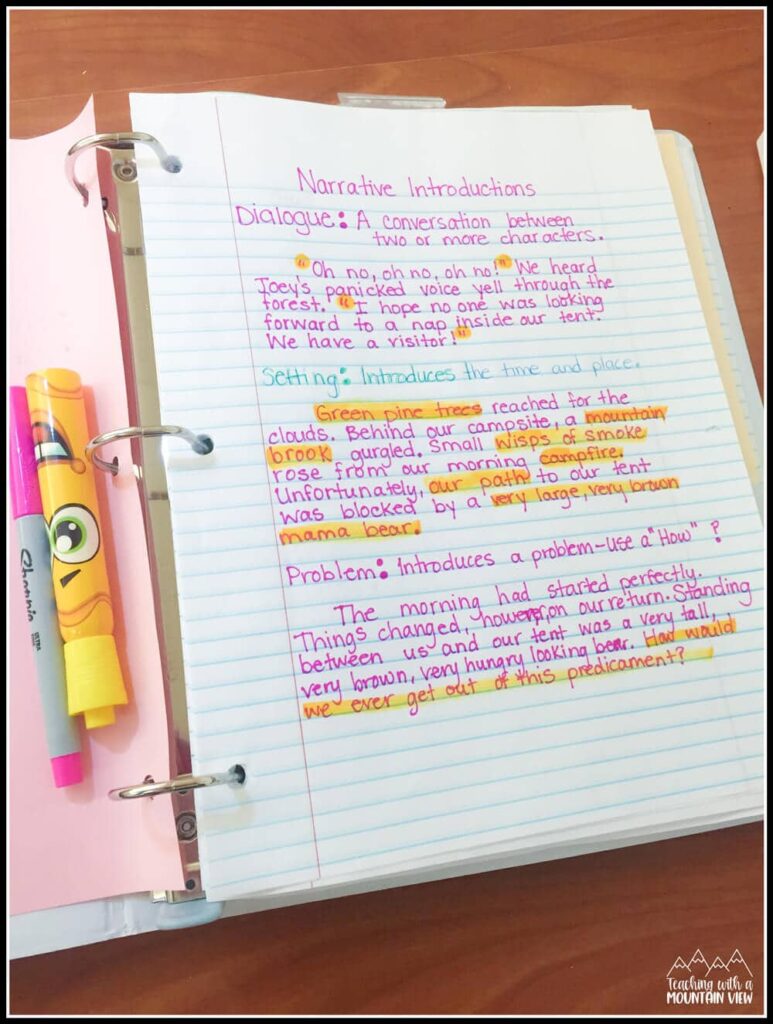 Narrative Introductions
Dialogue: A conversation between
two or more characters.
"Oh no, oh no, oh no!" We heard
Joey's panicked voice yell through the
forest. "I hope no one was looking
forward to a nap inside our tent.
We have a visitor!"
Setting: Introduces the time and place.
Green pine trees reached for the
clouds. Behind our campsite, a mountain
brook gurgled. Small wisps of smoke
rose from our morning campfire.
Unfortunately, our path to our tent
was blocked by a very large, very brown
mama bear.
Problem: Introduces a problem-use a "How" ?
The morning had started perfectly.
Things changed, however, on our return. Standing
between us and our tent was a very tall,
very brown, very hungry looking bear. How would
we ever get out of this predicament?
Sharpie
ULTRA
Teaching with a
MOUNTAIN VIEW